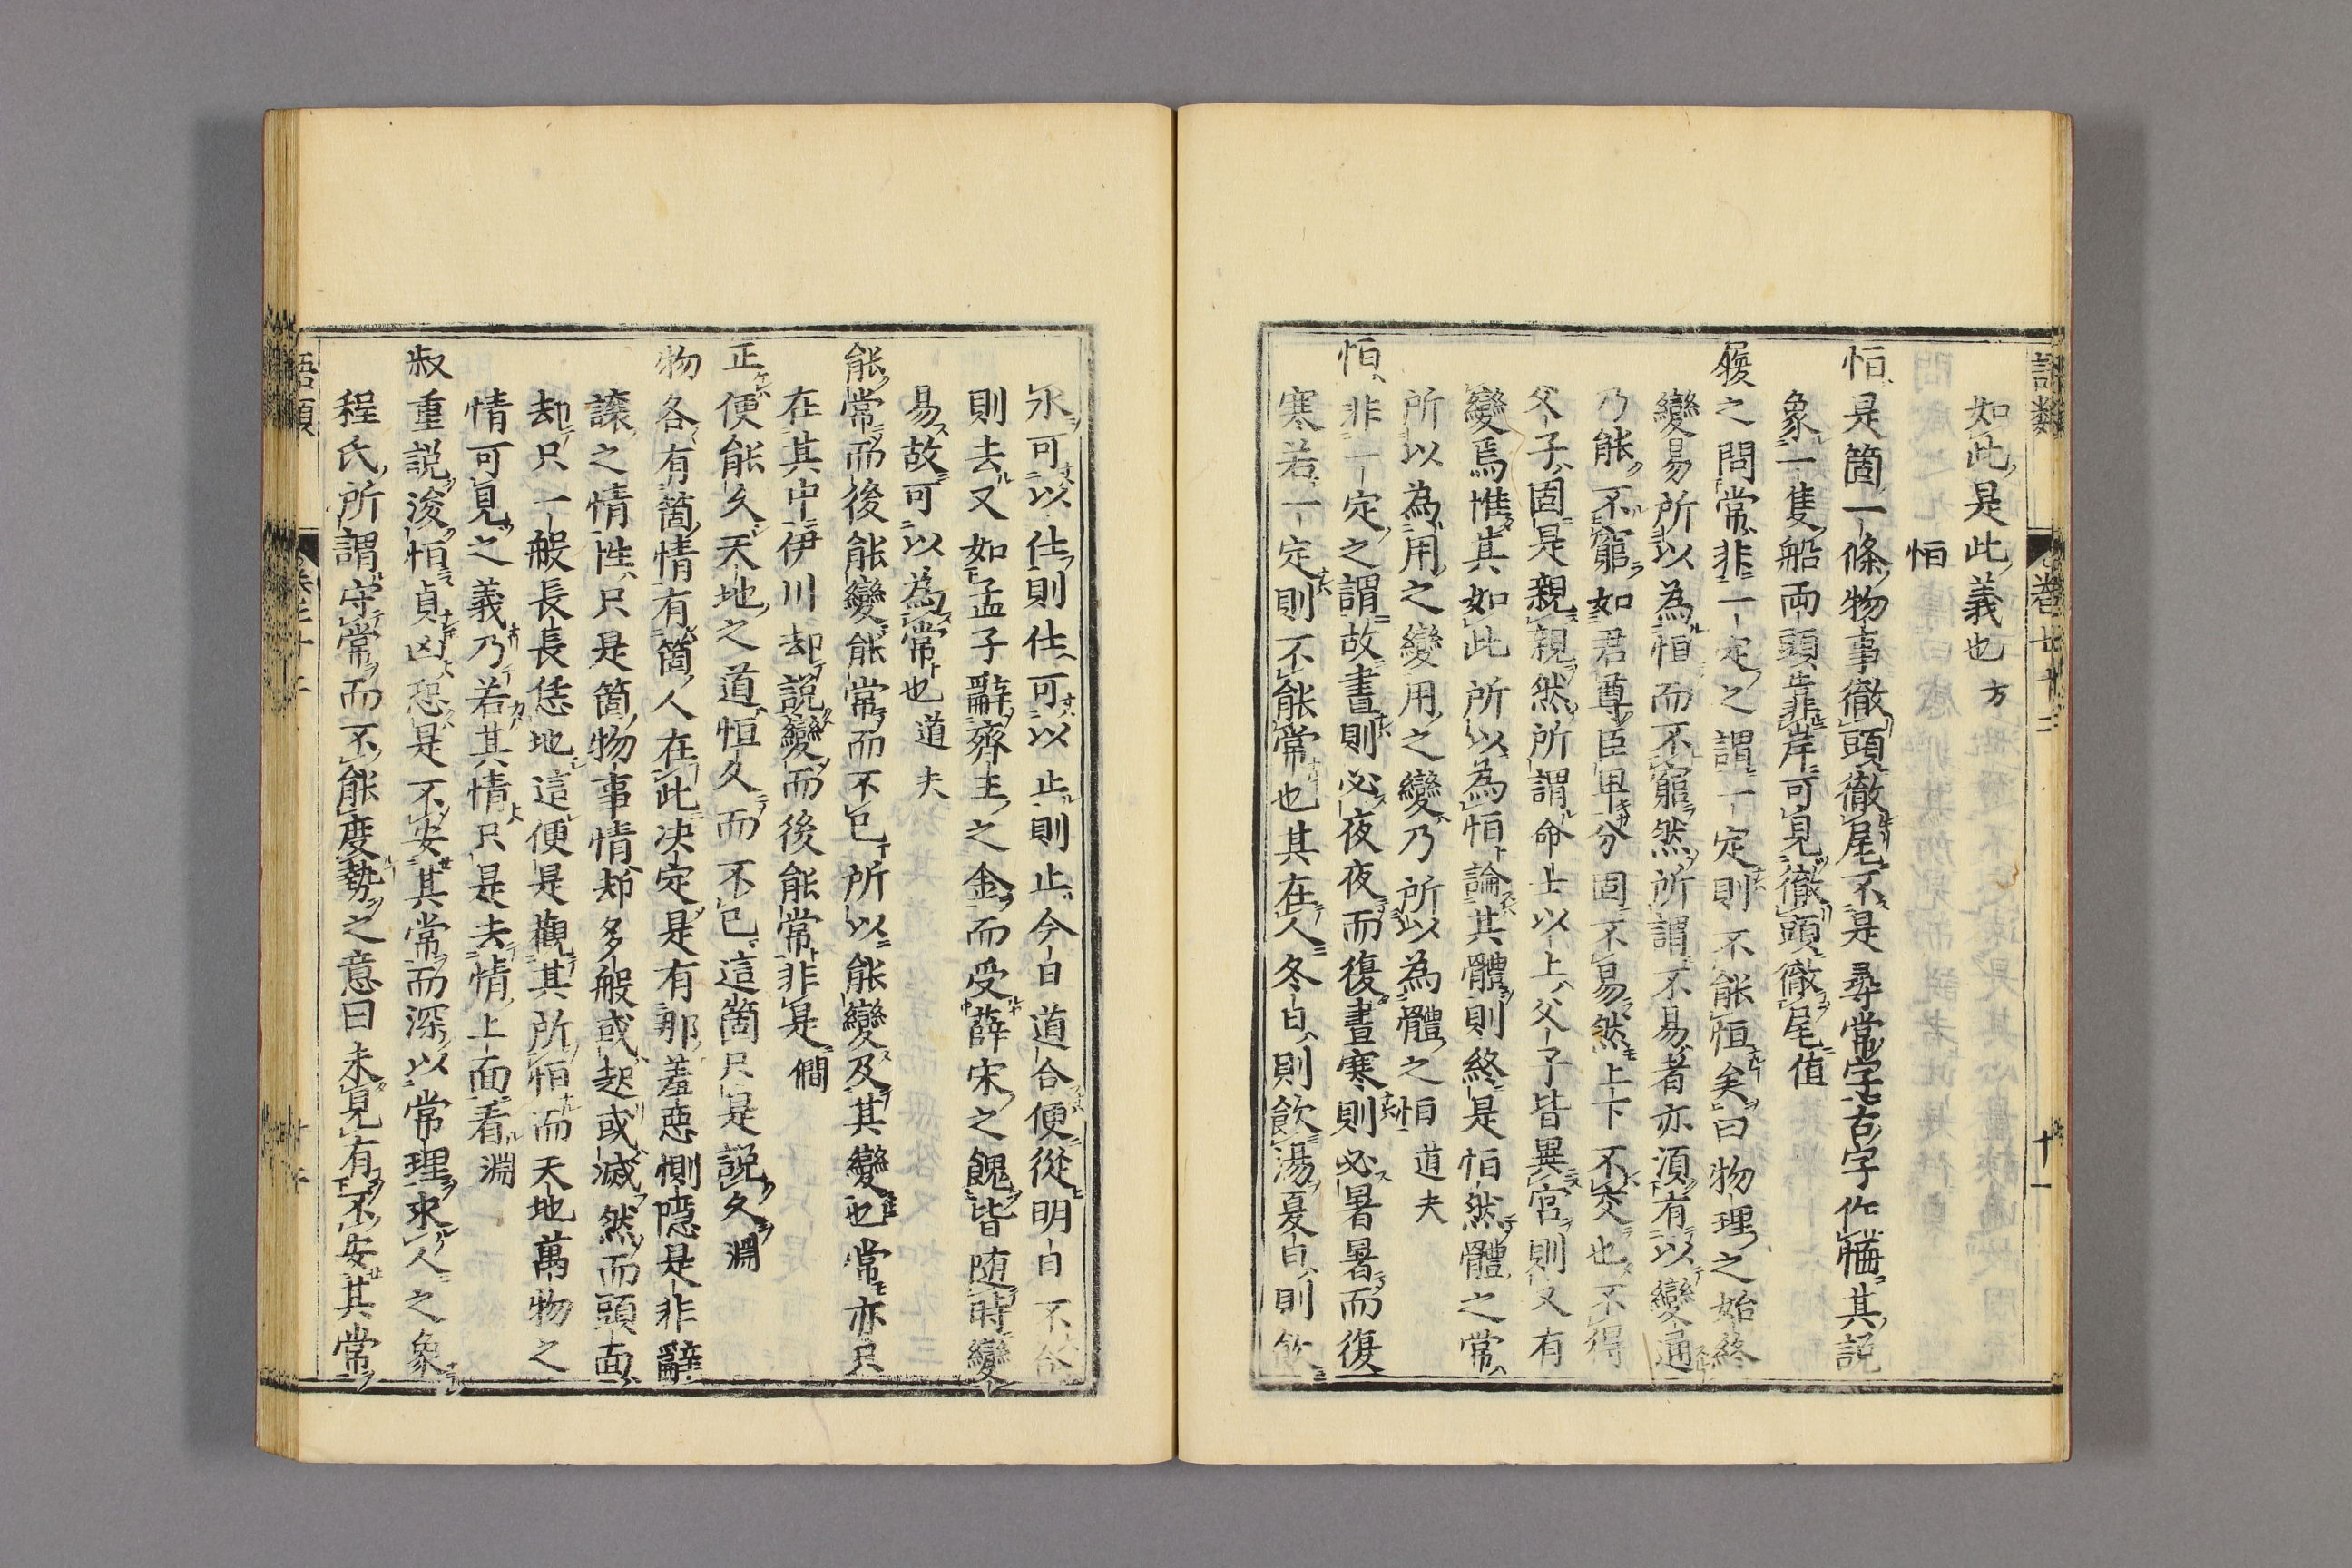 如此是此義也 方
恒
恒是箇一條物事徹頭徹尾不是尋常字古字作㮓其説
象一隻船兩頭靠岸可見徹頭徹尾 値
履之問常非一定之謂一定則不能恒矣曰物理之始終
變易所以為恒而不窮然所謂不易者亦須有以變通
乃能不窮如君尊臣卑分固不易然上下不交也不得
父子固是親親然所謂命士以上父子皆異宮則又有
變焉惟其如此所以為恒論其體則終是恒然體之常
所以為用之變用之變乃所以為體之恒 道夫
恒非一定之謂故晝則必夜夜而復晝寒則必暑暑而復
寒若一定則不能常也其在人冬日則飲湯夏日則飲
水可以仕則仕可以止則止今日道合便從明日不合
則去又如孟子辭齊王之金而受薛宋之餽皆随時變
易故可以為常也 道夫
能常而後能變能常而不已所以能變及其變也常亦只
在其中伊川却説變而後能常非是 僩
正便能久天地之道恒久而不已這箇只是説久 淵
物各有箇情有箇人在此決定是有那羞惡惻隠是非辭
讓之情性只是箇物事情却多般或起或滅然而頭面
却只一般長長恁地這便是觀其所恒而天地萬物之
情可見之義乃若其情只是去情上面看 淵
叔重説浚恒貞凶恐是不安其常而深以常理求人之象
程氏所謂守常而不能度勢之意曰未見有不安其常
語類
卷七十二
十一